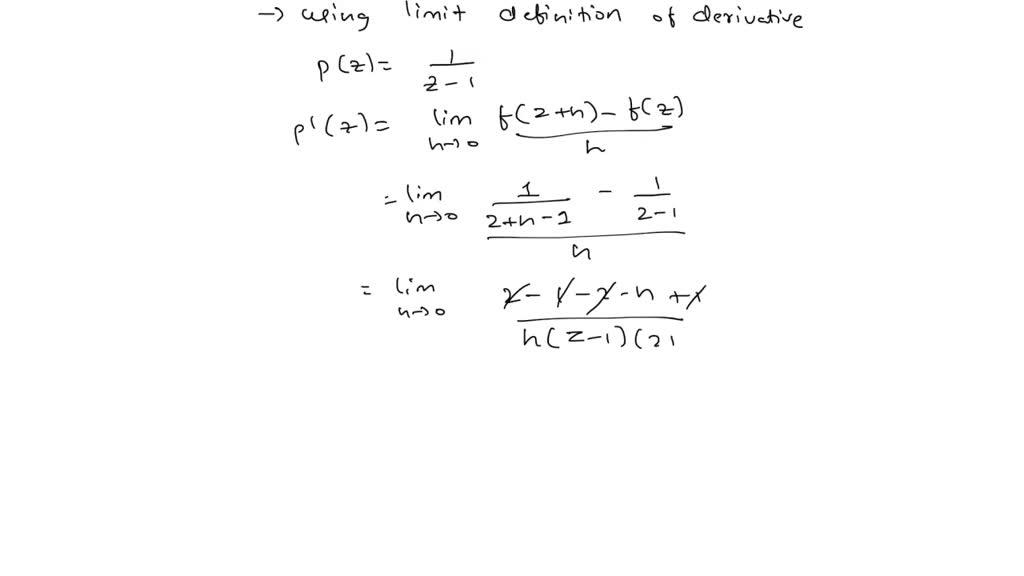 → using limit definition of derivative
p(z) = 1/(z-1)
p'(z) = lim h→0 (f(z+h) - f(z))/h
= lim h→0 (1/(z+h-1) - 1/(z-1))/h
= lim h→0 (z - 1 - z - h + 1)/(h(z-1)(z1